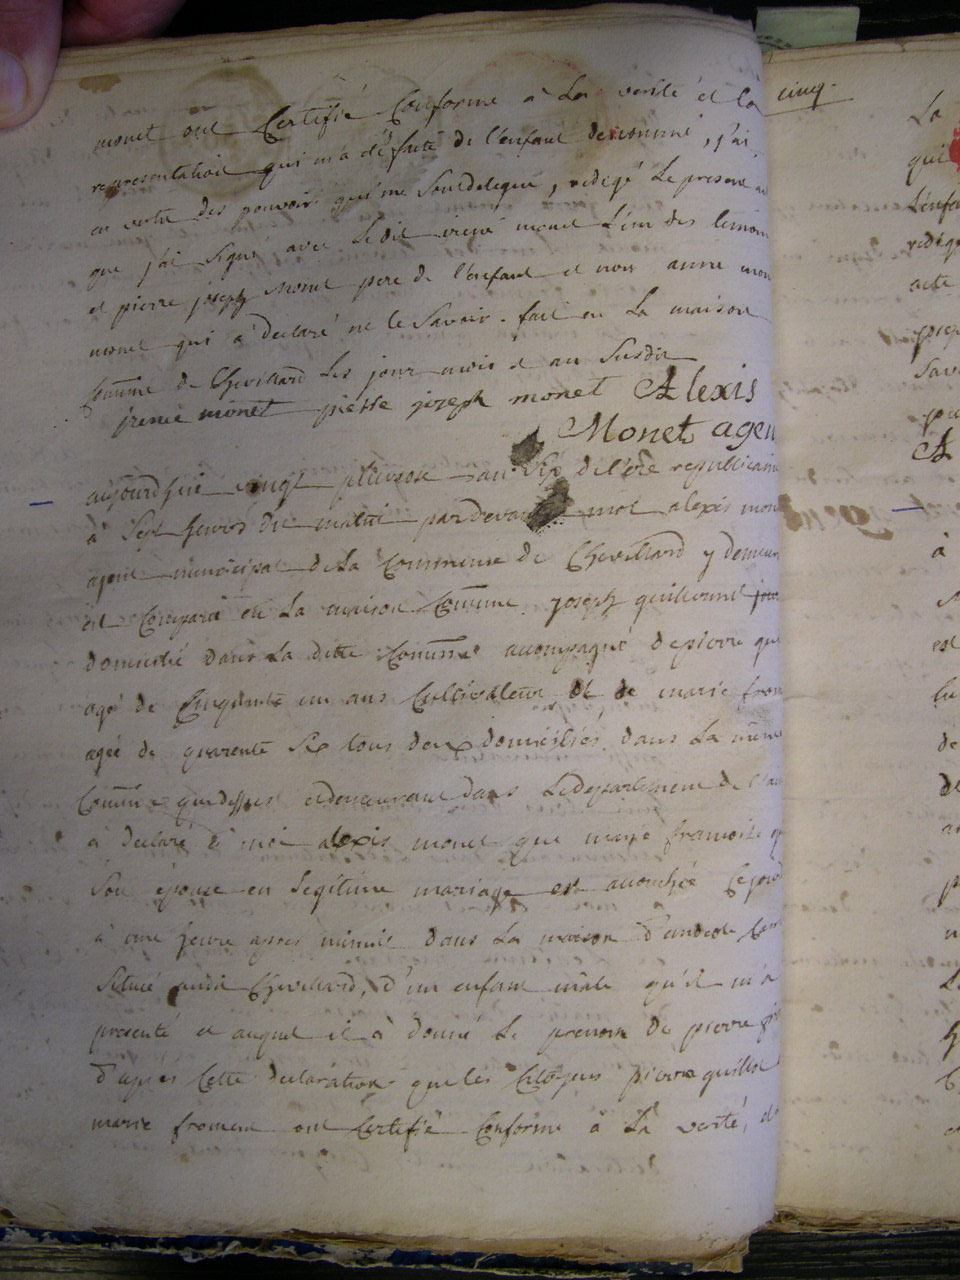 cinq.
monet ont Certifié Conforme à La verité et la
representation qui m'a été faite de l'enfant denommé, j'ai
en vertu des pouvoirs qui me sont delegué, redigé Le present
que j'ai signé avec Ledit irené monet L'un des temoin
et pierre joseph monet pere de l'enfant et non anne
monet qui à declaré ne le savoir. fait en La maison
Comme de Chevillard Les jour mois et an Susdit
jrené monet pierre joseph monet Alexis
Monet agen
aujourd'hui vingt pluviose an de l'ere republicaine
à Sept heures du matin pardevant moi alexis mon
agent municipal de La Commune de Chevillard y demeur
est Comparu en La maison Comune, joseph guillermet
domicilié dans La ditte Comune accompagné de pierre gui
agé de Cinquante un ans Cultivateur et de marie from
agée de quarente Six tous deux domiciliés dans La même
Commune que dessus et demeurant dans Le departement de l'ain
à declaré à moi alexis monet que marie francoise
Son épouse en Legitime mariage est accouchée Cejourd
à une heure apres minuit dans La maison
Située audit Chevillard, d'un enfant mâle qu'il m'a
presenté et auquel il à donné Le prenom de pierre
d'apres Cette declaration que les Citoyens pierre guille
marie froment ont Certifié Conforme à La verité, et
La
qui
L'enfan
redigé
acte
Sav
A
à
est
de
de